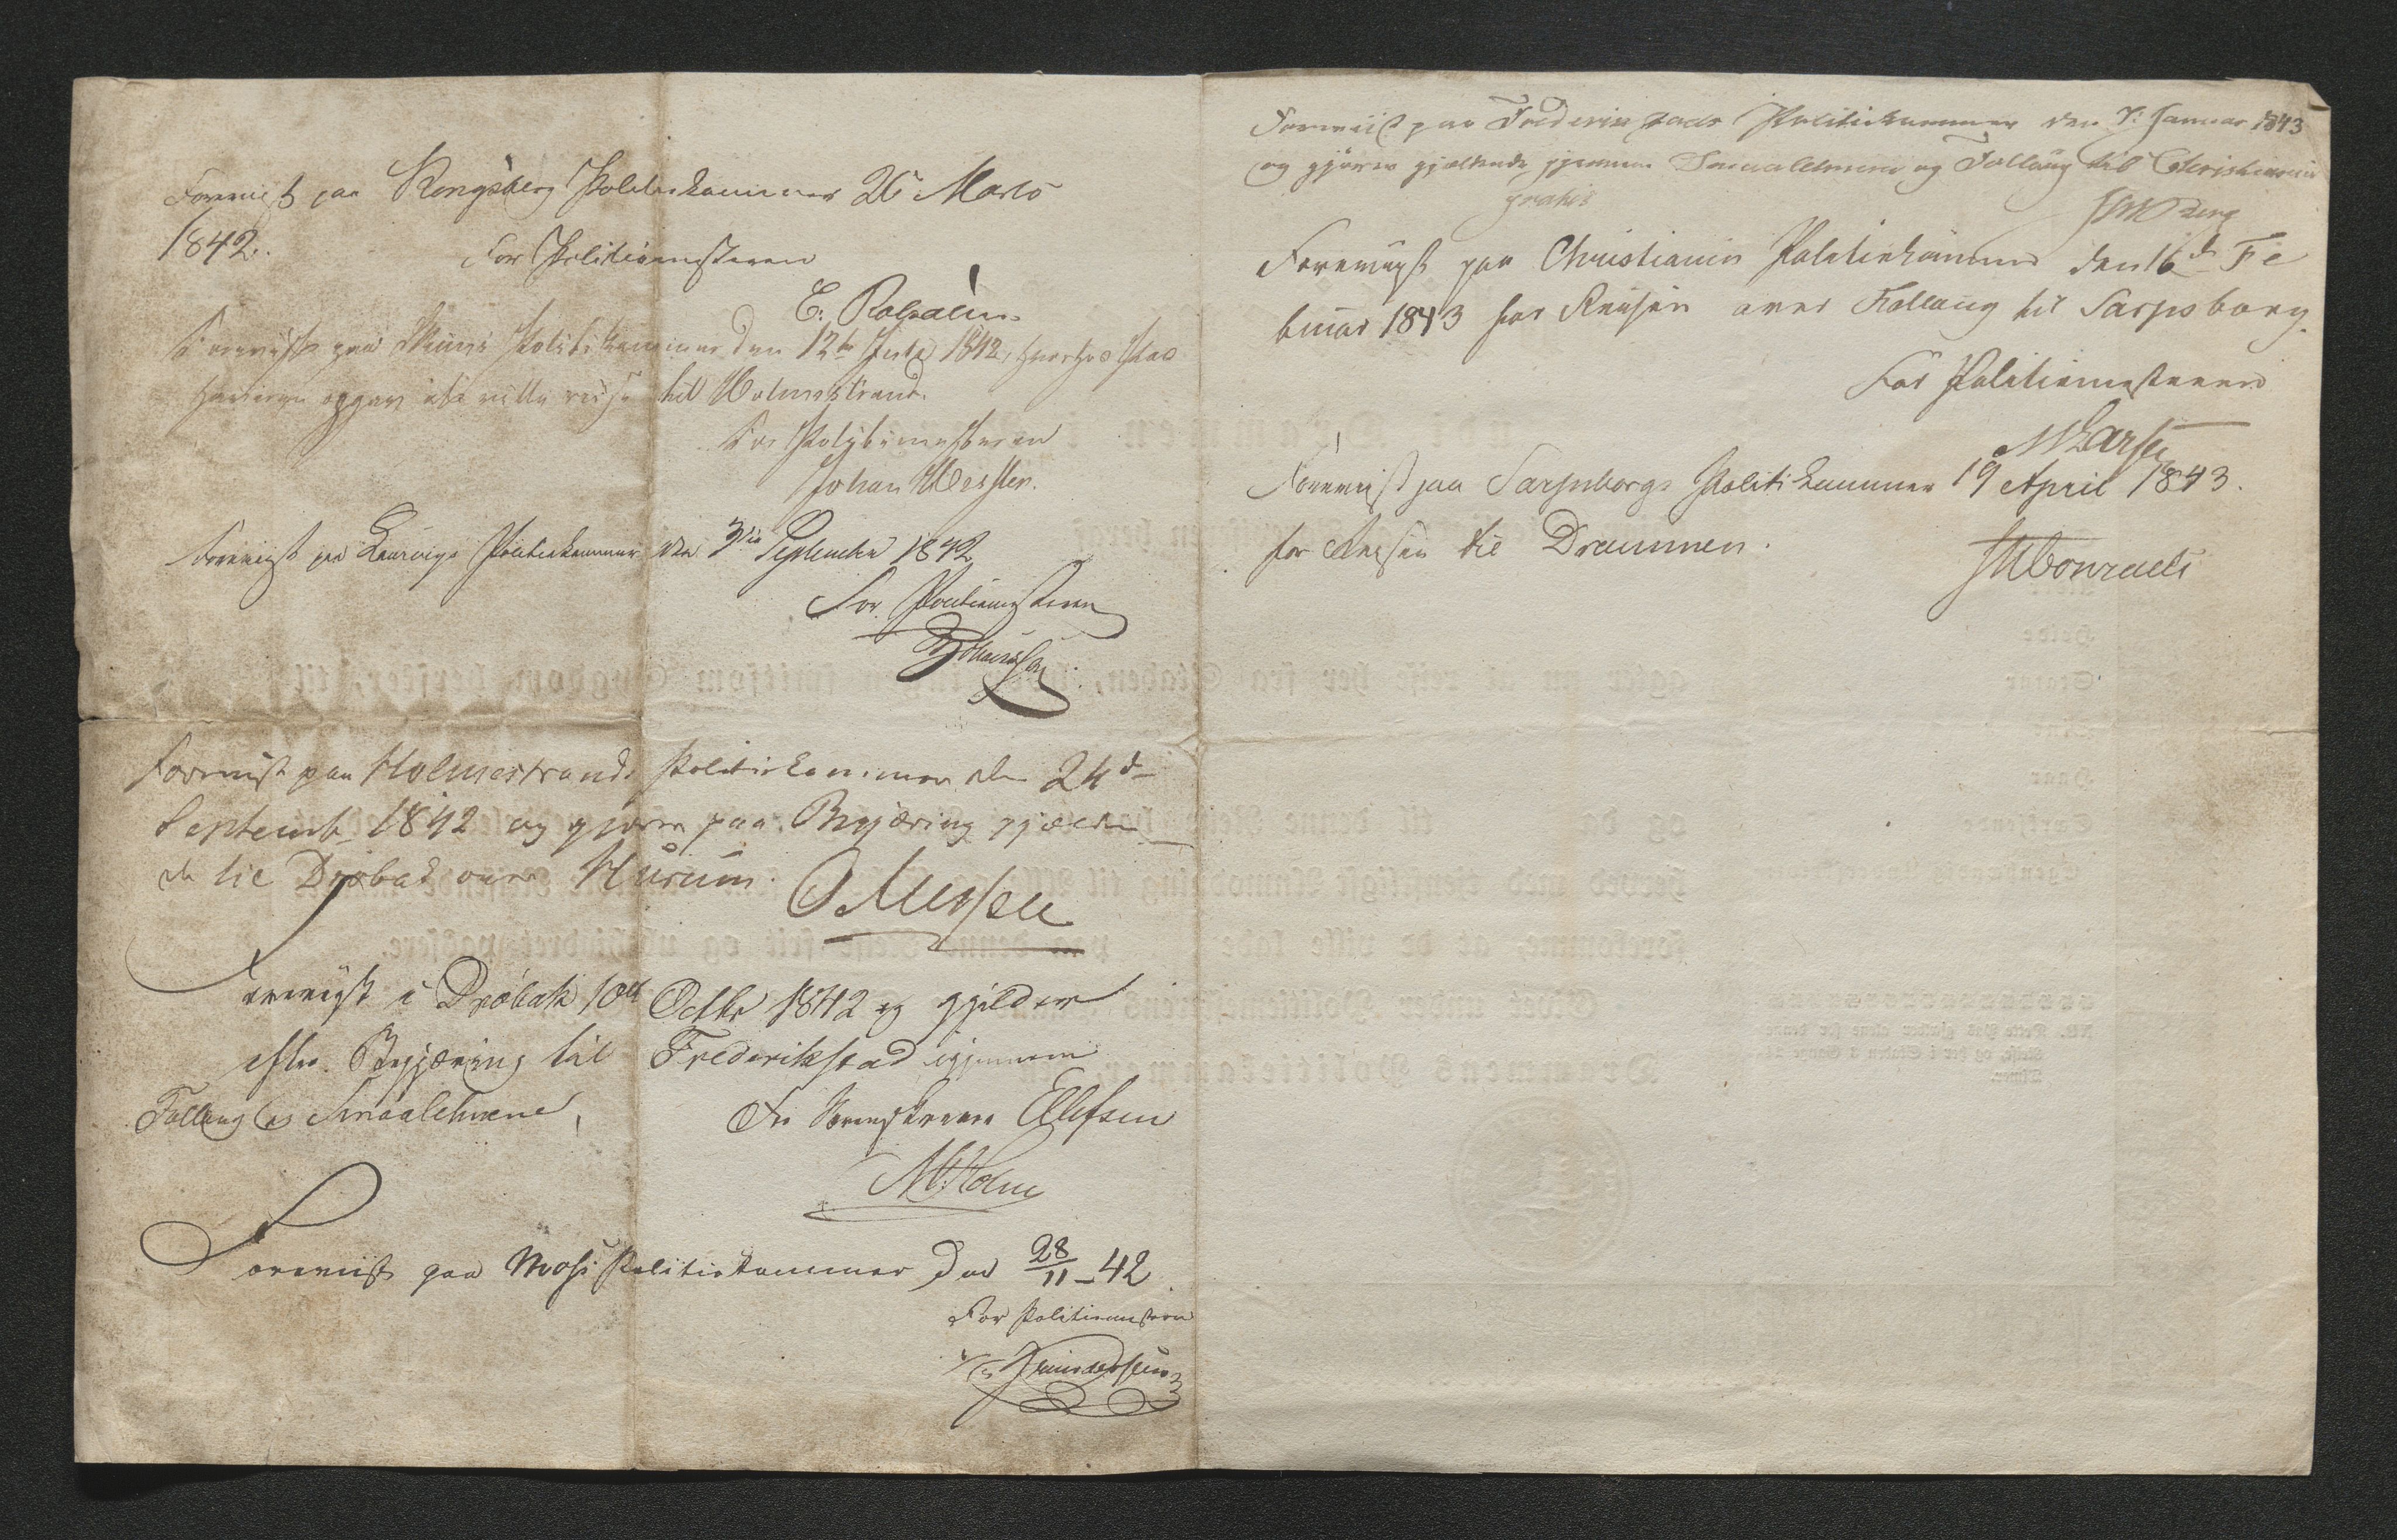 Foreviist paa Kongsberg Politiekammer 26 Marts
1842.
For Politiemesteren
Foreviist paa Politikammer den 12te Juli 1842, hvorhos Pas
opgav at ville reise til Holmestrand.
For Politimesteren
Johan
Foreviist paa Laurvigs Politiekammer den 3die September 1842
For Politiemesteren
Foreviist paa Holmestrands Politiekammer den 24d
Septemb 1842 og gjøres paa Begjæring gjælden
de til Drøbak over Hurum.
Foreviist i Drøbak 10de Octbr 1842 og gjelder
efter Begjæring til Frederikstad igjennem
Follaug og Smaalehnene,
For Sorenskriver Ellefsen
M Holm
Foreviist paa Moss Politiekammer den 28/11 - 42
For Politiemesteren
Foreviist paa Frederikstads Politiekammer den 7: Januar 1843
og gjøres gjældende gjennem Smaalehnene og Follaug til Christiania
gratis
Berg
Foreviist paa Christiania Politiekammer den 16d Fe
bruar 1843 for Reisen over Follaug til Sarpsborg.
For Politiemesteren
M Larsen
Foreviist paa Sarpsborgs Politikammer 19 April 1843.
for Reisen til Drammen.